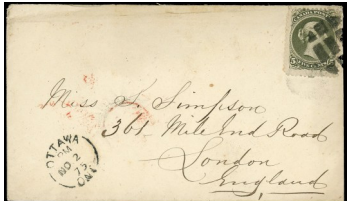 Miss S. Simpson
361 Mile End Road
London
England
OTTAWA
PM
NO 2
75
ONT